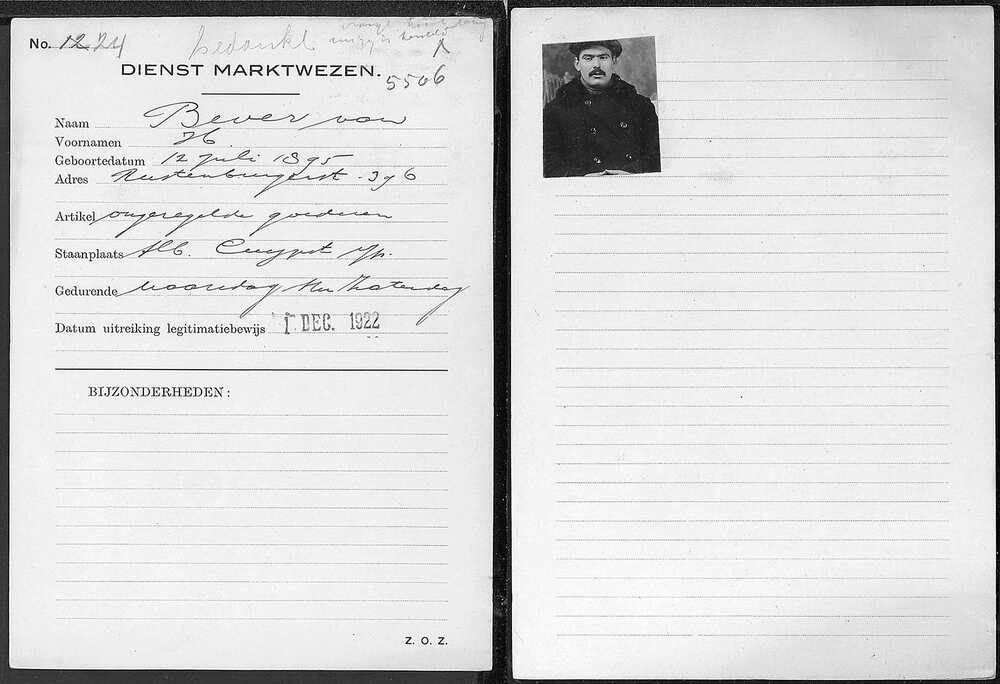 No. 1224
bedankt
DIENST MARKTWEZEN.
5506
Naam Bever van
Voornamen H.
Geboortedatum 12 Juli 1895
Adres Rustenburgerst. 376
Artikel ongeregelde goederen
Staanplaats Alb. Cuypst
Gedurende Maandag t/m Zaterdag
Datum uitreiking legitimatiebewijs 1 DEC. 1922
BIJZONDERHEDEN:
Z. O. Z.